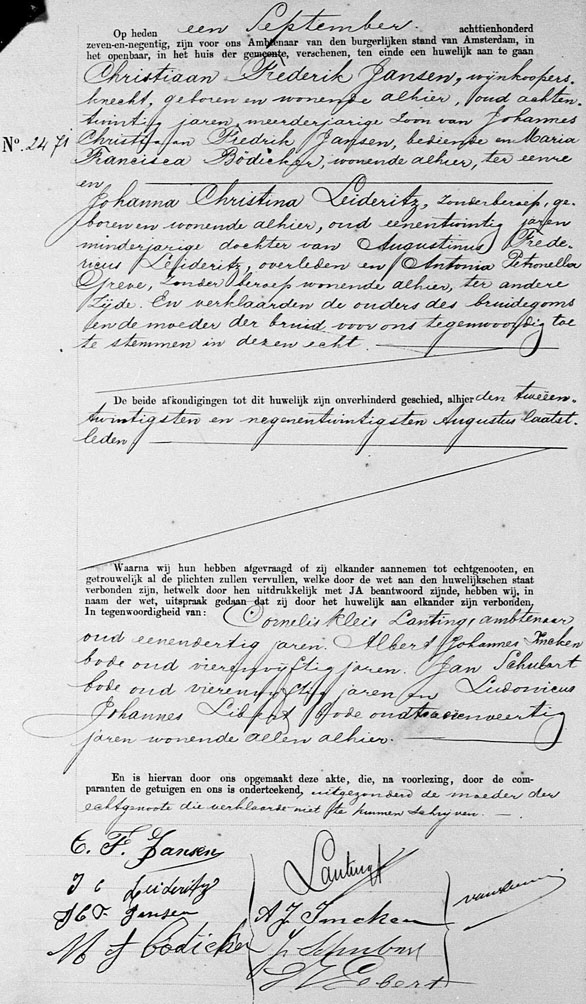 Op heden een September. achttienhonderd
zeven-en-negentig, zijn voor ons Ambtenaar van den burgerlijken stand van Amsterdam, in
het openbaar, in het huis der gemeente, verschenen, ten einde een huwelijk aan te gaan
Christiaan Frederik Jansen, wijnkoopers-
knecht, geboren en wonende alhier, oud achten-
twintig jaren, meerderjarige zoon van Johannes
No. 2471 Christiaan Fredrik Jansen, bediende en Maria
Francisca Bödicker, wonende alhier, ter eenre
en
Johanna Christina Leideritz, zonder beroep, ge-
boren en wonende alhier, oud eenentwintig jaren
minderjarige dochter van Augustinus Frede-
ricus Leideritz, overleden en Antonia Petronella
Greve, zonder beroep wonende alhier, ter andere
zijde. En verklaarden de ouders des bruidegoms
en de moeder der bruid, voor ons tegenwoordig toe
te stemmen in dezen echt.
De beide afkondigingen tot dit huwelijk zijn onverhinderd geschied, alhier den tweeën-
twintigsten en negenentwintigsten Augustus laatst-
leden
Waarna wij hun hebben afgevraagd of zij elkander aannemen tot echtgenooten, en
getrouwelijk al de plichten zullen vervullen, welke door de wet aan den huwelijkschen staat
verbonden zijn, hetwelk door hen uitdrukkelijk met JA beantwoord zijnde, hebben wij, in
naam der wet, uitspraak gedaan dat zij door het huwelijk aan elkander zijn verbonden.
In tegenwoordigheid van: Cornelis Kleis Lanting, ambtenaar
oud eenendertig jaren. Albert Johannes Imcken
bode oud vierenvijftig jaren. Jan Schubart
bode oud vierenvijftig jaren en Ludovicus
Johannes bode oud tweeënveertig
jaren wonende allen alhier.
En is hiervan door ons opgemaakt deze akte, die, na voorlezing, door de com-
paranten de getuigen en ons is onderteekend, uitgezonderd de moeder der
echtgenoote die verklaarde niet te kunnen schrijven.
C. F. Jansen Lanting
J C Leideritz
J C F Jansen A J Imcken
M F Bodicker Schubart